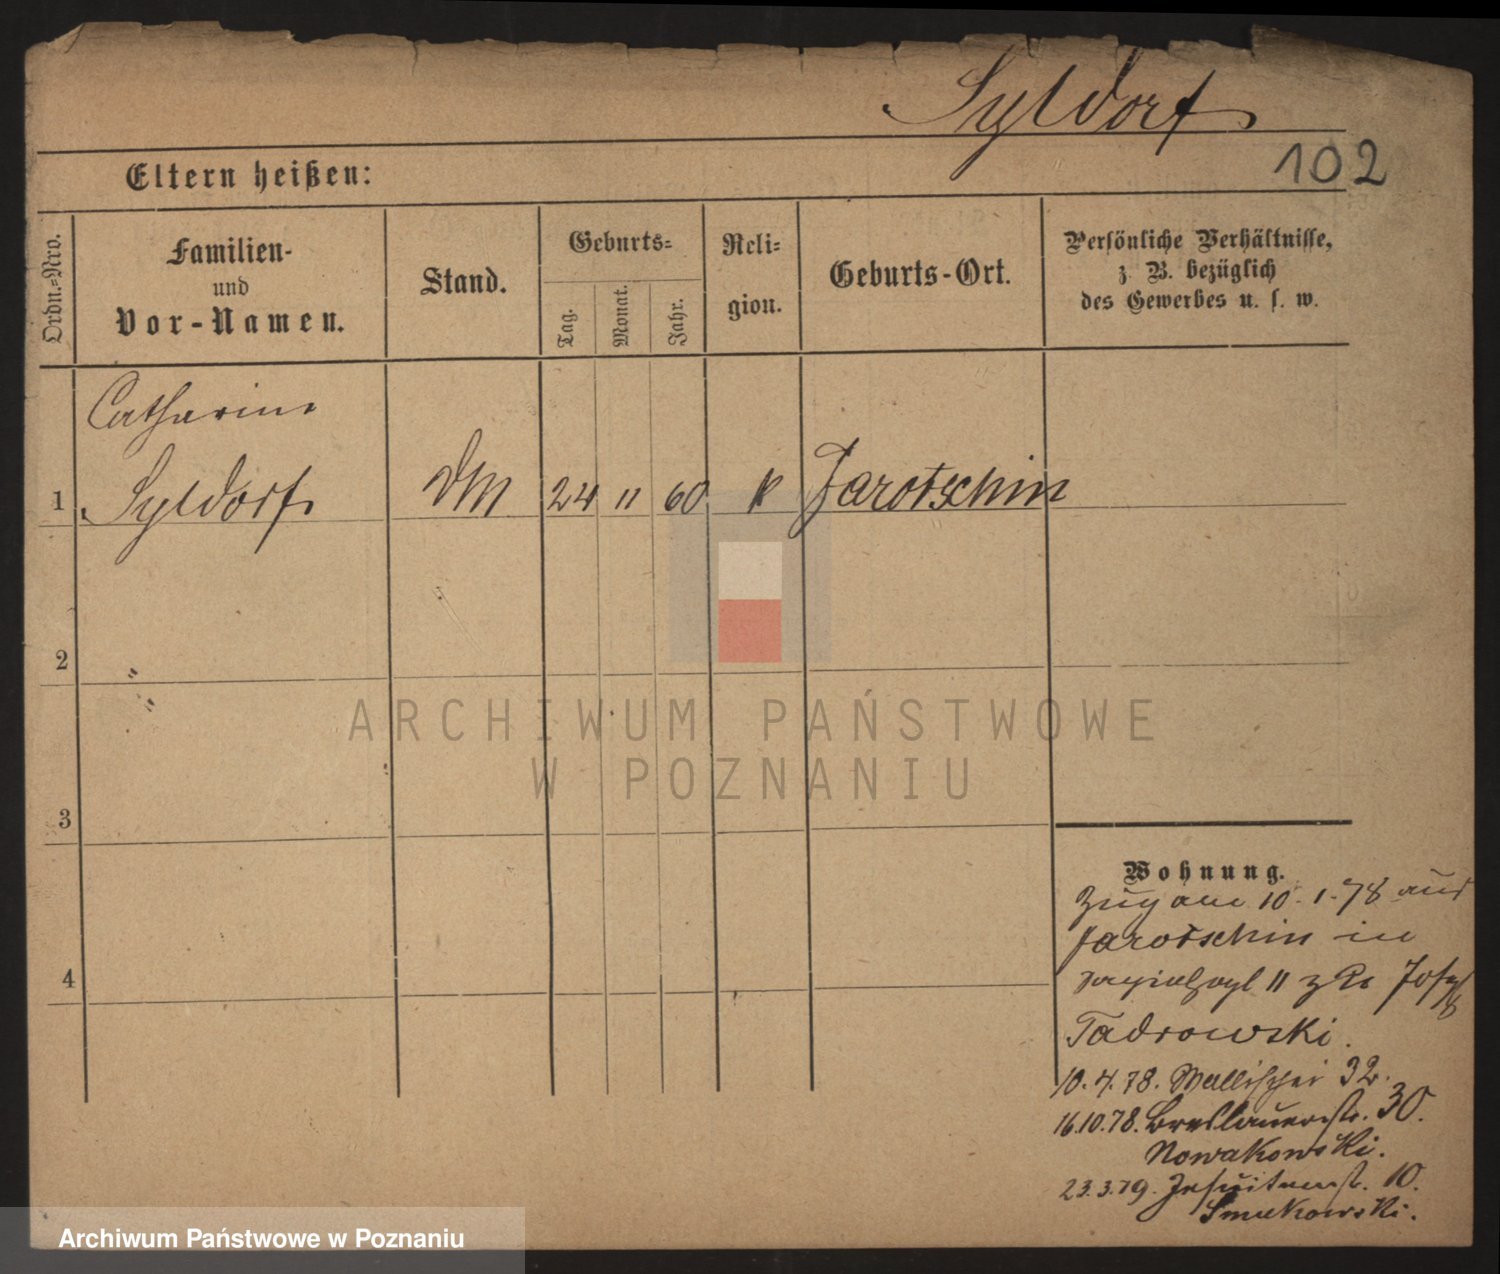 Syldorf
102
Eltern heißen:
Ordn.=Nro.
Familien-
und
Vor-Namen.
Stand.
Geburts=
Tag.
Monat.
Jahr.
Reli=
gion.
Geburts-Ort.
Persönliche Verhältnisse,
z. B. bezüglich
des Gewerbes u. s. w.
Catharina
1 Syldorf DM 24 11 60 K Jarotschin
2
3
4
Wohnung.
Zugam 10-1-78 aus
Jarotschin in
11 Josef
Tadrowski.
10.4.78. Wallischei 32.
16.10.78. Breslauerstr. 30.
Nowakowski.
23.3.79. Jesuitenstr. 10.
Smukowski.
ARCHIWUM PAŃSTWOWE
W POZNANIU
Archiwum Państwowe w Poznaniu